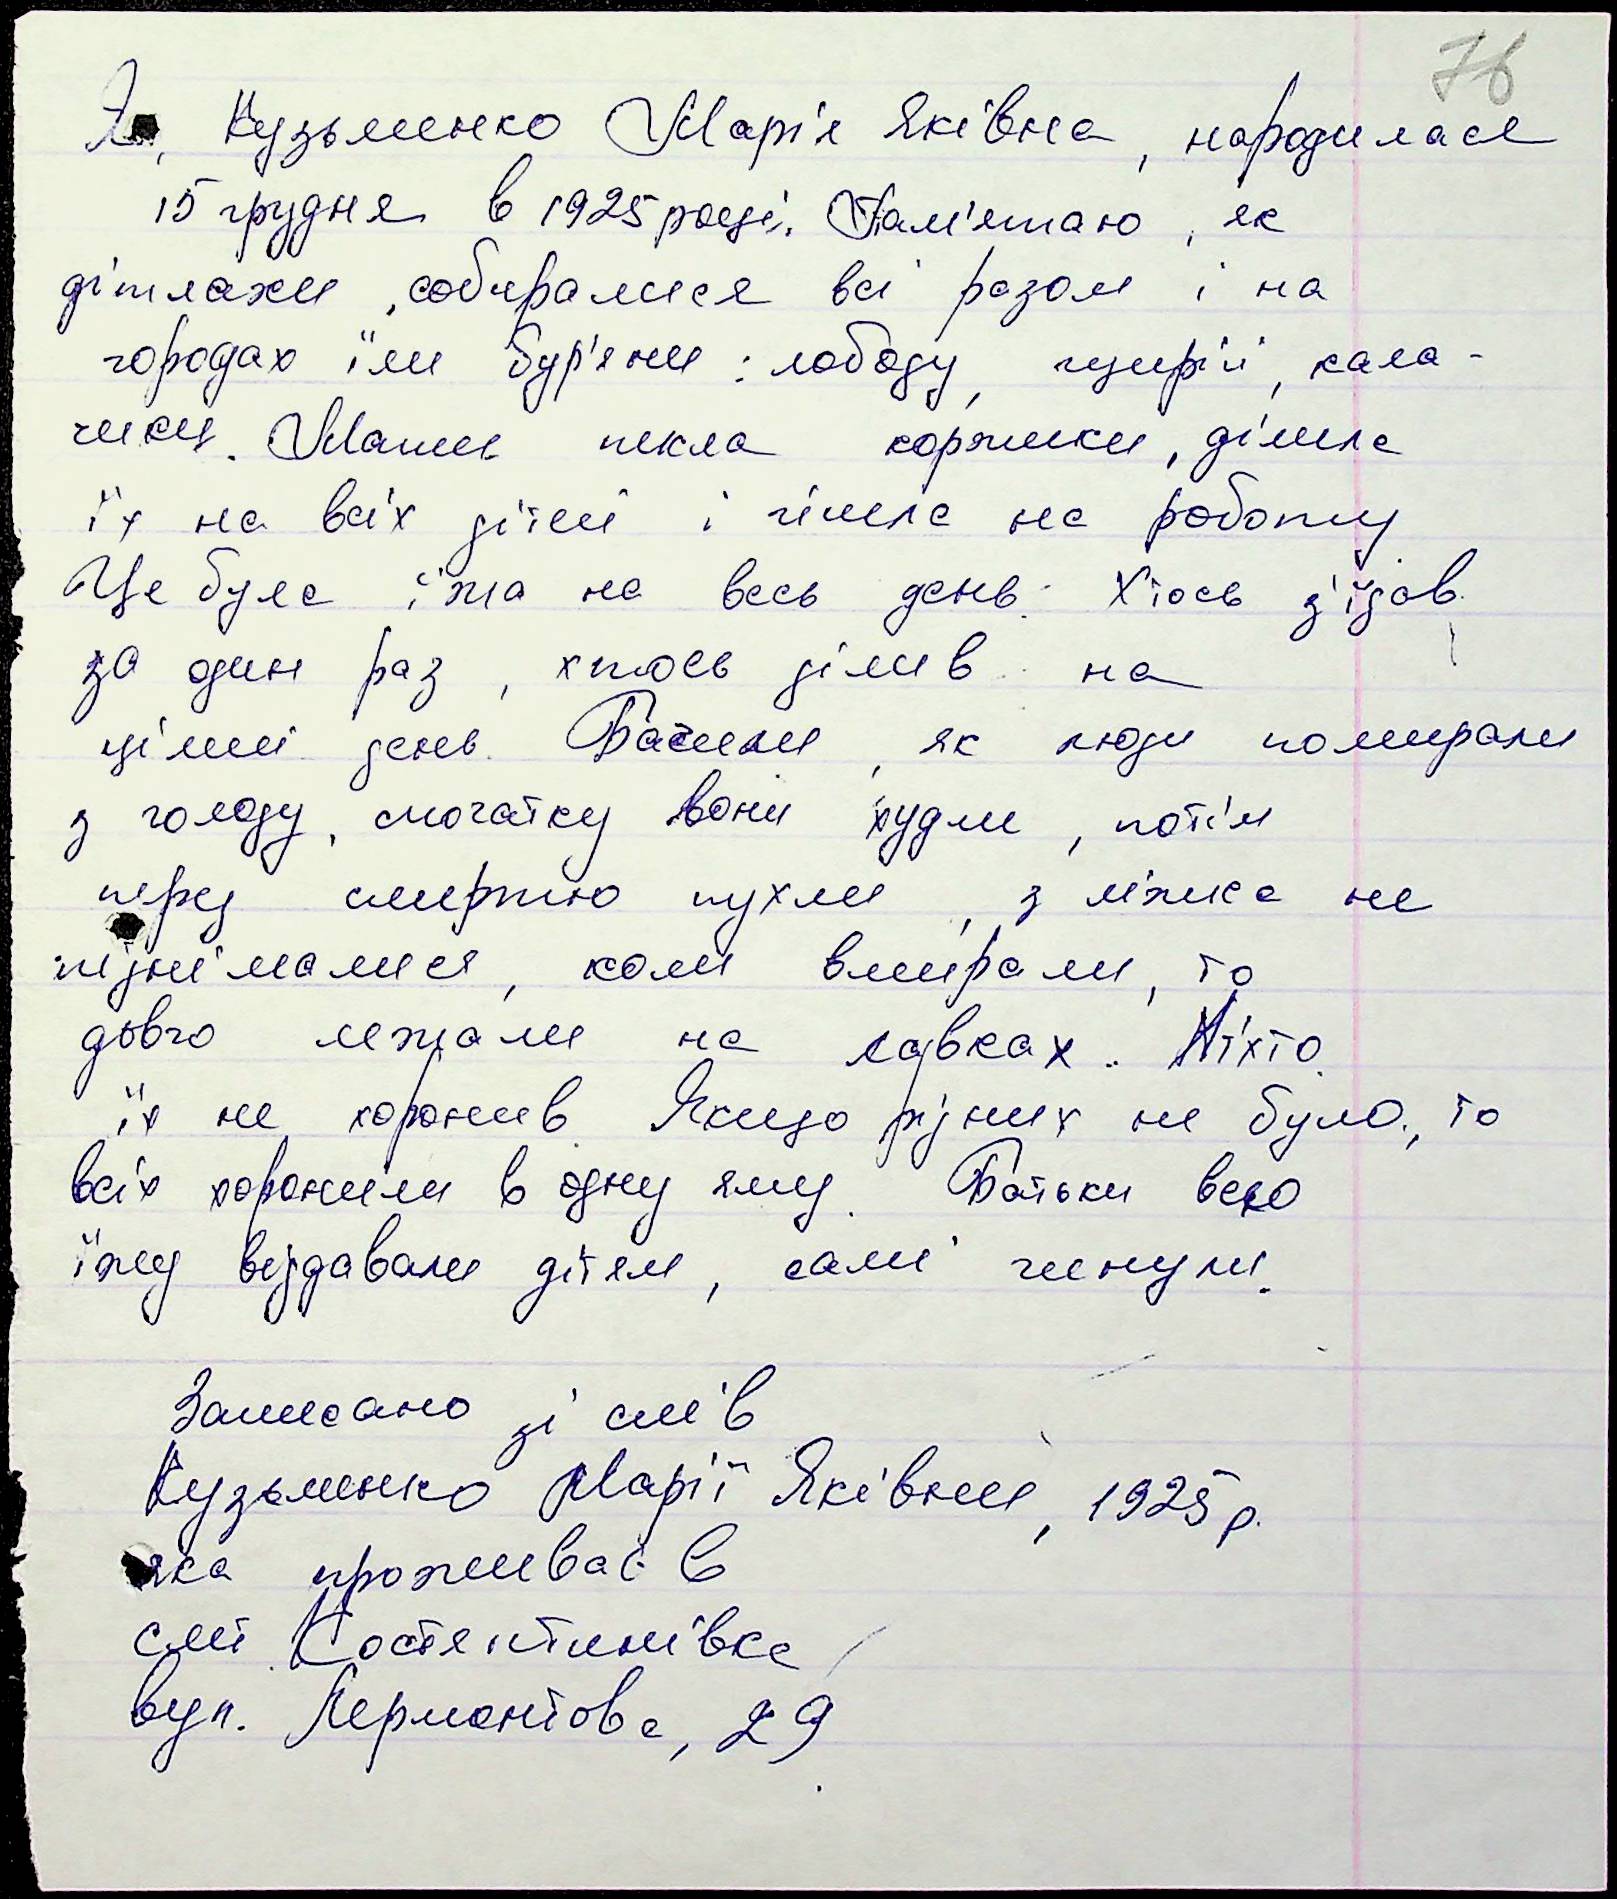 76
Я, Кузьменко Марія Яківна, народилася
15 грудня в 1925 році. Пам'ятаю, як
дітлахи, собиралися всі разом і на
городах їли бур'яни: лободу, щирій, кала-
чики. Мати пекла коржики, ділила
їх на всіх дітей і йшла на роботу
Це була їжа на весь день. Хтось з'їдав
за один раз, хтось ділив на
цілий день. Бачили, як люди помирали
з голоду, спочатку вони худли, потім
перед смертю пухли, з ліжка не
піднімалися, коли вмирали, то
довго лежали на лавках. Ніхто
їх не хоронив. Якщо рідних не було, то
всіх хоронили в одну яму. Батьки всю
їжу віддавали дітям, самі гинули.
Записано зі слів
Кузьменко Марії Яківни, 1925 р.
яка проживає в
смт Костянтинівка
вул. Лермонтова, 29